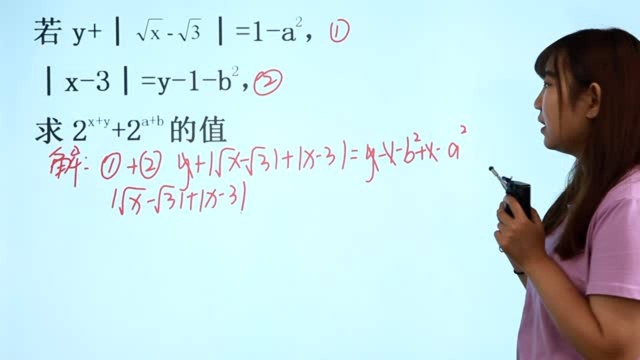 若 y+|√x-√3|=1-a², ①
|x-3|=y-1-b², ②
求 2^{x+y}+2^{a+b} 的值
解: ①+② y+|√x-√3|+|x-3|=y-1-b²+1-a²
|√x-√3|+|x-3|